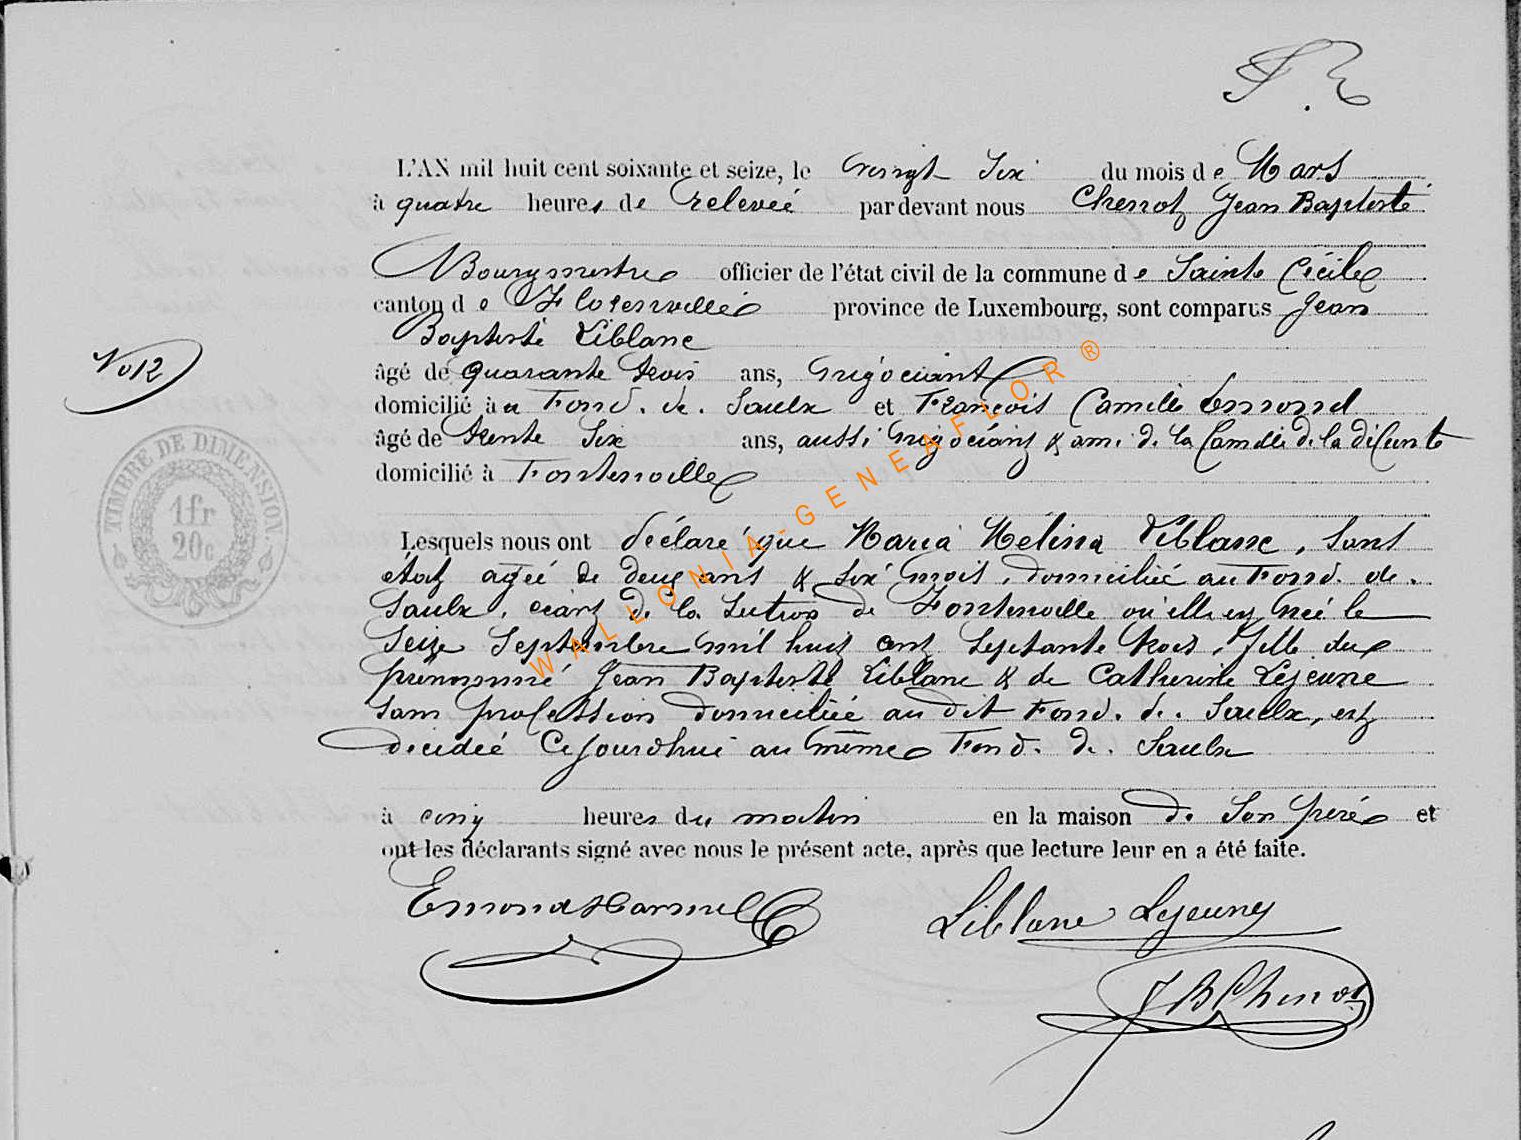 L'AN mil huit cent soixante et seize, le vingt Six du mois de Mars
à quatre heures de relevée par devant nous Chenot Jean Baptiste
Bourgmestre officier de l'état civil de la commune de Sainte Cécile
canton de Florenville province de Luxembourg, sont comparus Jean
Baptiste Liblanc
No 12
âgé de quarante trois ans, négociant
domicilié au Fond. de. Saulx et François Camille Emond
âgé de trente Six ans, aussi négociant & ami de la famille de la défunte
domicilié à Fontenoille
TIMBRE DE DIMENSION
1fr
20c
Lesquels nous ont déclaré que Maria Mélina Liblanc, Sans
état agée de deux ans & Six mois, domiciliée au Fond. de.
Saulx, de la Section de Fontenoille où elle est née le
Seize Septembre mil huit cent Septante trois, fille du
prénommé Jean Baptiste Liblanc & de Catherine Lejeune
Sans profession domiciliée au dit Fond. de. Saulx, est
décédée Cejourdhui au même Fond. de. Saulx
à cinq heures du matin en la maison de Son père et
ont les déclarants signé avec nous le présent acte, après que lecture leur en a été faite.
Emond Harmel Liblanc Lejeune
J B Chenot
WALLONIA-GENEAFLOR®